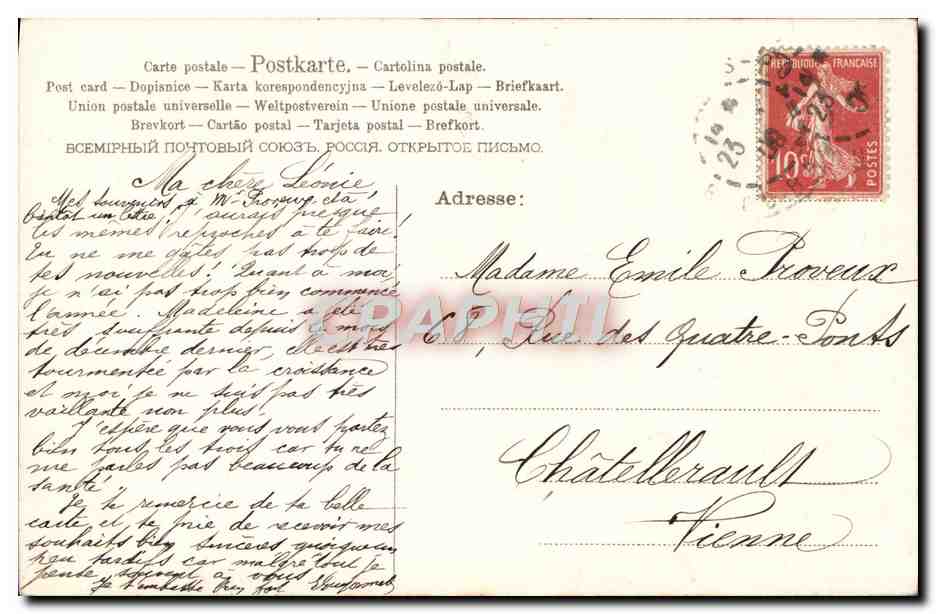 Carte postale — Postkarte. — Cartolina postale.
Post card — Dopisnice — Karta korespondencyjna — Levelező-Lap — Briefkaart.
Union postale universelle — Weltpostverein — Unione postale universale.
Brevkort — Cartão postal — Tarjeta postal — Brefkort.
ВСЕМІРНЫЙ ПОЧТОВЫЙ СОЮЗЪ. РОССІЯ. ОТКРЫТОЕ ПИСЬМО.
REPUBLIQUE FRANÇAISE
10c
POSTES
23
Ma chère Léonie
Mes souvenirs à Mr Proveux et à
bientôt une lettre
J'aurais presque
les mêmes reproches à te faire!
Tu ne me gâtes pas trop de
tes nouvelles! Quant à moi
je n'ai pas trop bien commencé
l'année. Madeleine a été
très souffrante depuis le mois
de décembre dernier, elle est très
tourmentée par la croissance
et moi je ne suis pas très
vaillante non plus.
J'espère que vous vous portez
bien tous les trois car tu ne
me parles pas beaucoup de la
santé.
Je te remercie de ta belle
carte et te prie de recevoir mes
souhaits bien sincères quoiqu'un
peu tardifs car malgré tout je
pense souvent à vous
Je t'embrasse bien fort
Adresse:
Madame Emile Proveux
68, Rue des Quatre-Ponts
Châtellerault
Vienne
CPAPHIL